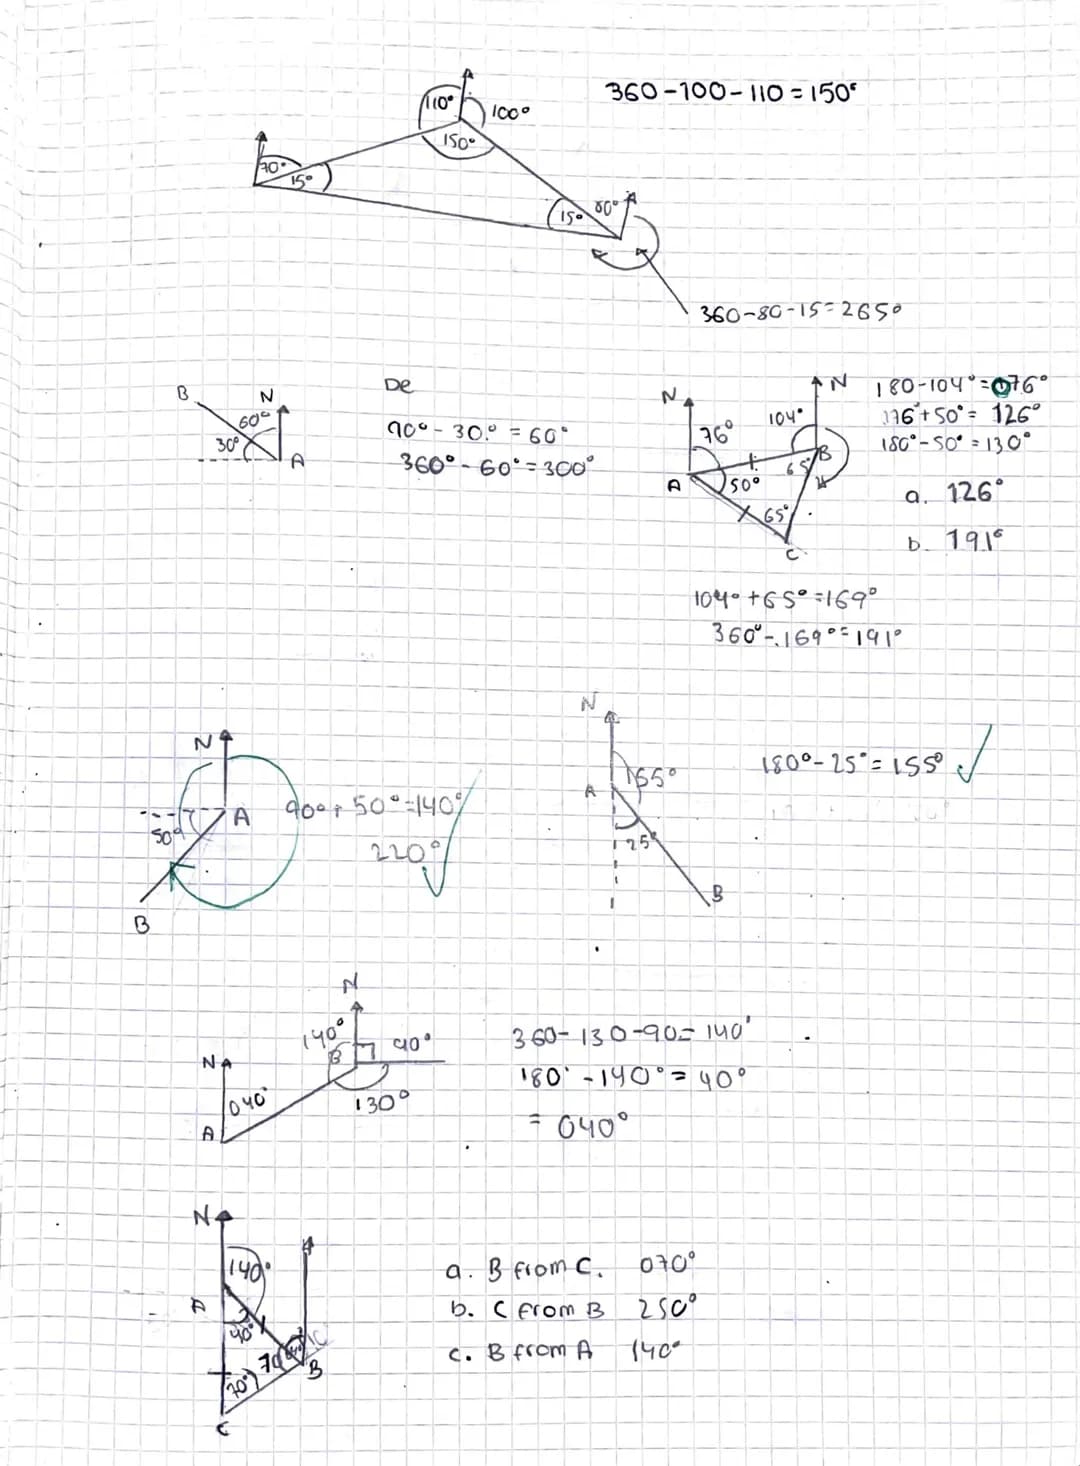 360-100-110=150°
110°
100°
150°
70°
15°
15°
80°
360-80-15=265°
B
N
60°
30°
A
De
90°-30°=60°
360°-60°=300°
N
N
76°
104°
B
A
50°
65°
65°
C
180-104°=076°
176°+50°=126°
180°-50°=130°
a. 126°
b. 191°
104°+65°=169°
360°-169°=191°
N
A
50°
B
90°+50°=140°
220°
N
A
155°
25°
B
180°-25°=155°
N
140°
B
90°
N
040°
A
130°
360-130-90=140°
180°-140°=40°
=040°
N
140°
A
40°
70
70°
B
C
a. B from C. 070°
b. C from B 250°
c. B from A 140°